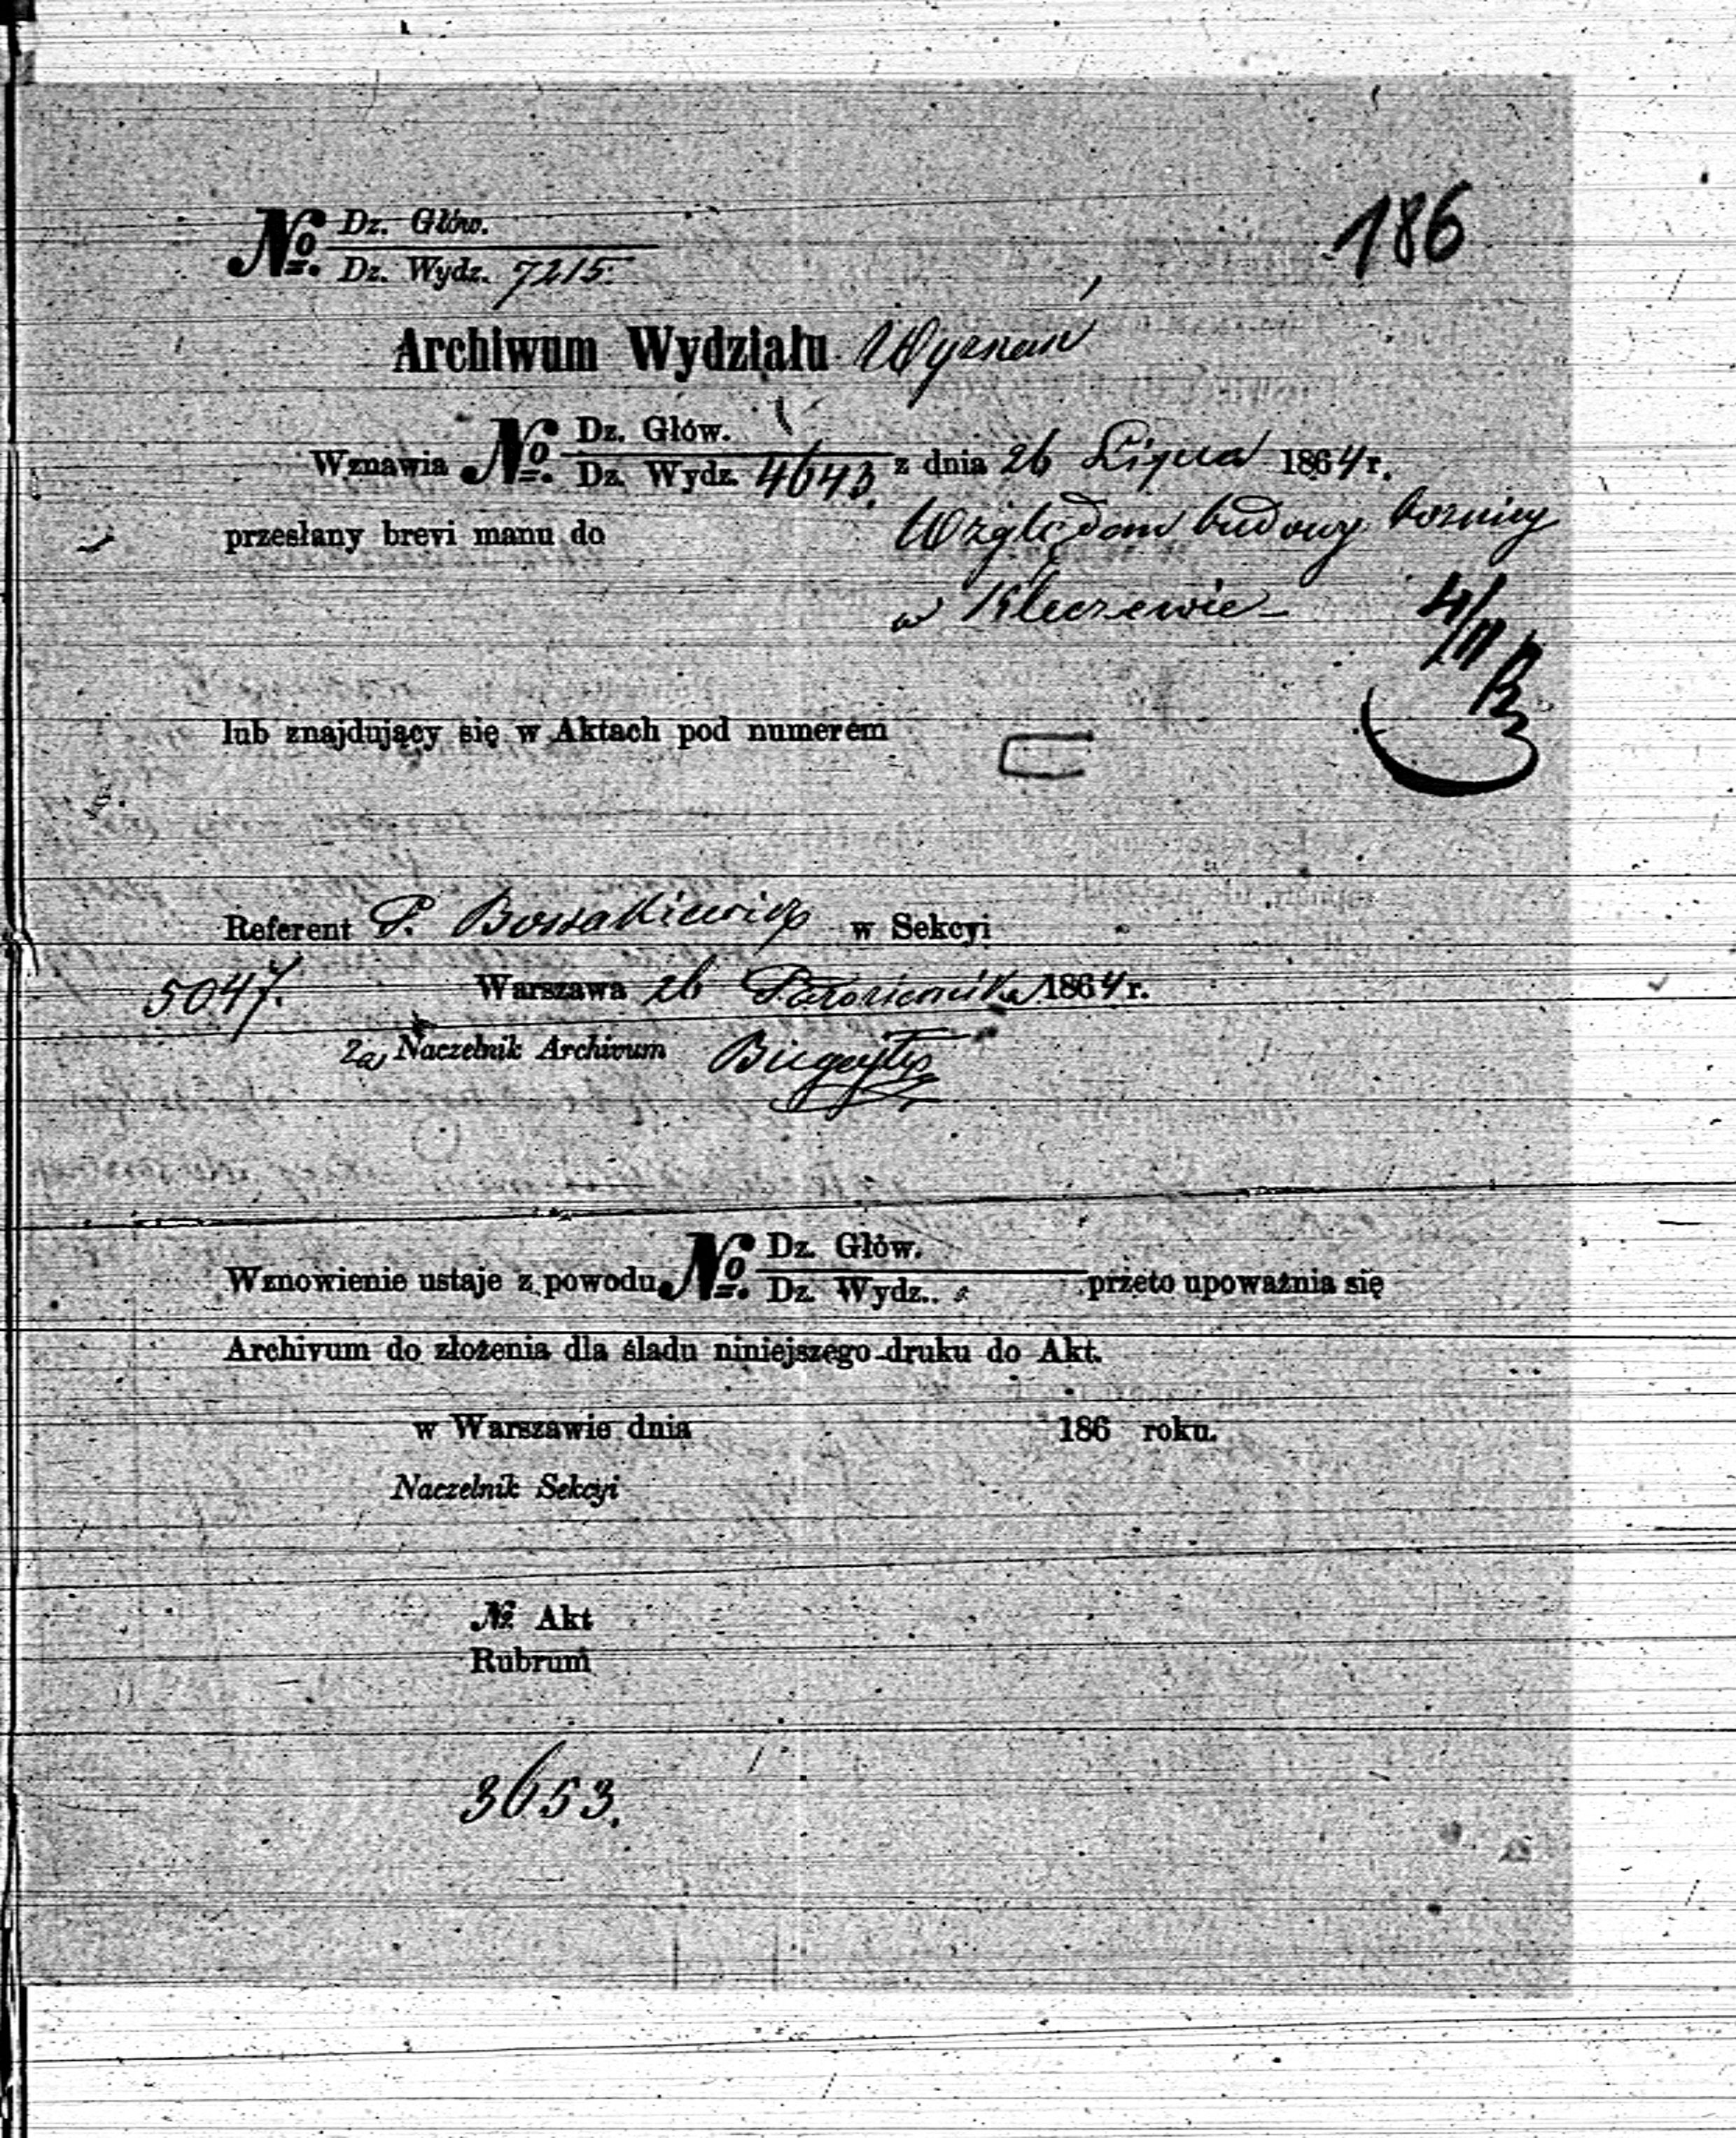 186
№ Dz. Głów.
Dz. Wydz. 7215.
Archiwum Wydziału Wyznań
Wznawia № Dz. Głów.
Dz. Wydz. 4643. z dnia 26 Lipca 1864 r.
przesłany brevi manu do Względem budowy bożnicy
w Kleczewie
4/11
lub znajdujący się w Aktach pod numerem
Referent P. Bossakiewicz w Sekcyi
5047. Warszawa 26 Października 1864 r.
Za Naczelnik Archivum
Wznowienie ustaje z powodu № Dz. Głów.
Dz. Wydz. przeto upoważnia się
Archivum do złożenia dla śladu niniejszego druku do Akt.
w Warszawie dnia 186 roku.
Naczelnik Sekcyi
№ Akt
Rubrum
3653.